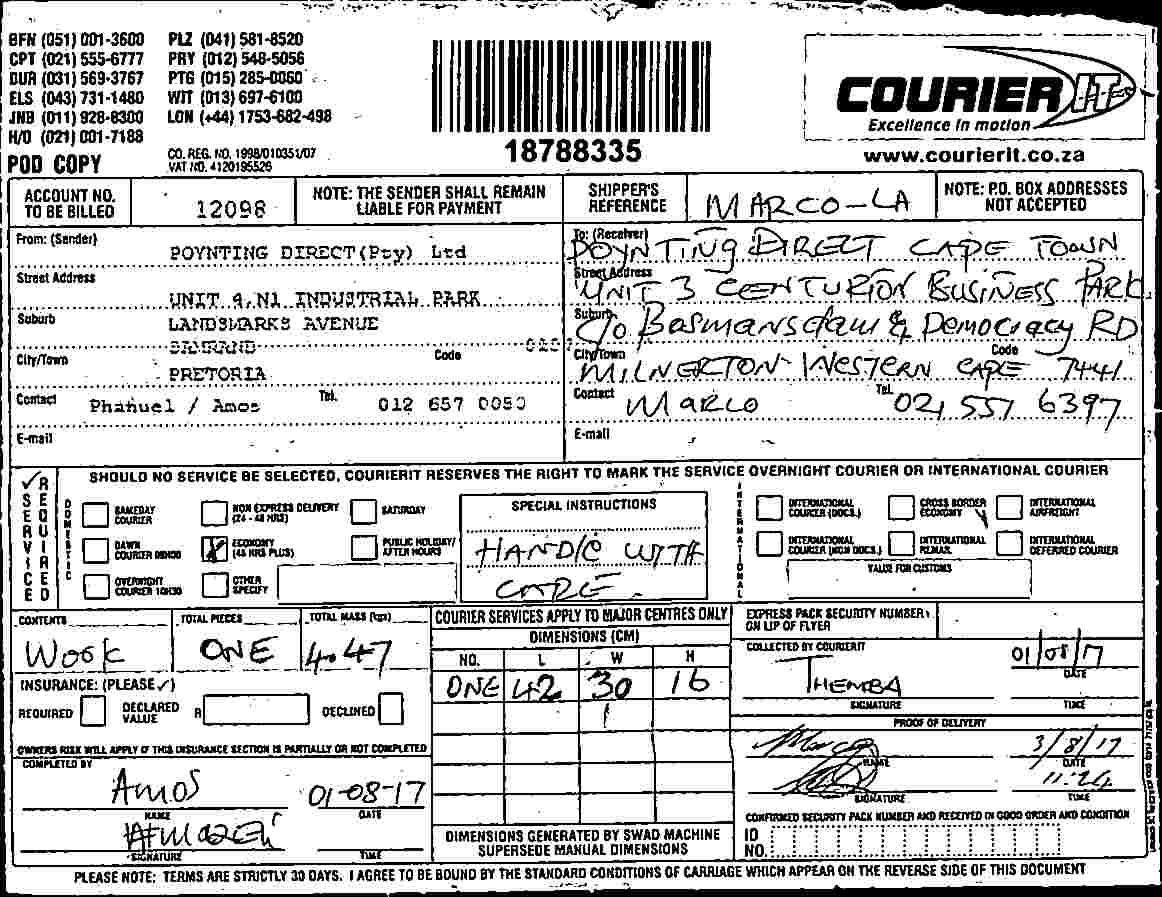 BFN (051) 001-3600 PLZ (041) 581-8520
CPT (021) 555-6777 PRY (012) 548-5056
DUR (031) 569-3767 PTG (015) 285-0060
ELS (043) 731-1480 WIT (013) 697-6100
JNB (011) 928-8300 LON (+44) 1753-682-498
H/O (021) 001-7188
POD COPY
CO. REG. NO. 1998/010351/07
VAT NO. 4120195526
18788335
COURIER IT
Excellence in motion
www.courierit.co.za
ACCOUNT NO. TO BE BILLED 12098
NOTE: THE SENDER SHALL REMAIN LIABLE FOR PAYMENT
SHIPPER'S REFERENCE MARCO-LA
NOTE: P.O. BOX ADDRESSES NOT ACCEPTED
From: (Sender) POYNTING DIRECT(Pty) Ltd
Street Address UNIT 4,N1 INDUSTRIAL PARK
Suburb LANDSMARKS AVENUE
SAMRAND
City/Town PRETORIA Code
Contact Phanuel / Amos Tel. 012 657 0050
E-mail
To: (Receiver) POYNTING DIRECT CAPE TOWN
Street Address UNIT 3 CENTURION BUSINESS PARK
Suburb C/o Bosmansdam & Democracy RD
City/Town MILNERTON-WESTERN CAPE Code 7441
Contact MARCO Tel. 021 557 6397
E-mail
SHOULD NO SERVICE BE SELECTED, COURIERIT RESERVES THE RIGHT TO MARK THE SERVICE OVERNIGHT COURIER OR INTERNATIONAL COURIER
SERVICE REQUIRED
DOMESTIC
SAMEDAY COURIER
NON EXPRESS DELIVERY (24 - 48 HRS)
SATURDAY
DAWN COURIER 08H00
ECONOMY (48 HRS PLUS)
PUBLIC HOLIDAY/ AFTER HOURS
OVERNIGHT COURIER 10H30
OTHER SPECIFY
SPECIAL INSTRUCTIONS
HANDLE WITH
CARE.
INTERNATIONAL
INTERNATIONAL COURIER (DOCS.)
CROSS BORDER ECONOMY
INTERNATIONAL AIRFREIGHT
INTERNATIONAL COURIER (NON DOCS.)
INTERNATIONAL REMAIL
INTERNATIONAL DEFERRED COURIER
VALUE FOR CUSTOMS
CONTENTS
TOTAL PIECES ONE
TOTAL MASS (kgs) 4.47
INSURANCE: (PLEASE ✓)
REQUIRED DECLARED VALUE R DECLINED
OWNERS RISK WILL APPLY IF THIS INSURANCE SECTION IS PARTIALLY OR NOT COMPLETED
COMPLETED BY
Amos 01-08-17
NAME DATE
SIGNATURE TIME
COURIER SERVICES APPLY TO MAJOR CENTRES ONLY
DIMENSIONS (CM)
NO. L W H
ONE 42 30 16
DIMENSIONS GENERATED BY SWAD MACHINE SUPERSEDE MANUAL DIMENSIONS
EXPRESS PACK SECURITY NUMBER: ON LIP OF FLYER
COLLECTED BY COURIERIT
THEMBA 01/08/17
DATE
SIGNATURE TIME
PROOF OF DELIVERY
Marco 3/8/17
NAME DATE
11:24
SIGNATURE TIME
CONFIRMED SECURITY PACK NUMBER AND RECEIVED IN GOOD ORDER AND CONDITION
ID NO.
PLEASE NOTE: TERMS ARE STRICTLY 30 DAYS. I AGREE TO BE BOUND BY THE STANDARD CONDITIONS OF CARRIAGE WHICH APPEAR ON THE REVERSE SIDE OF THIS DOCUMENT